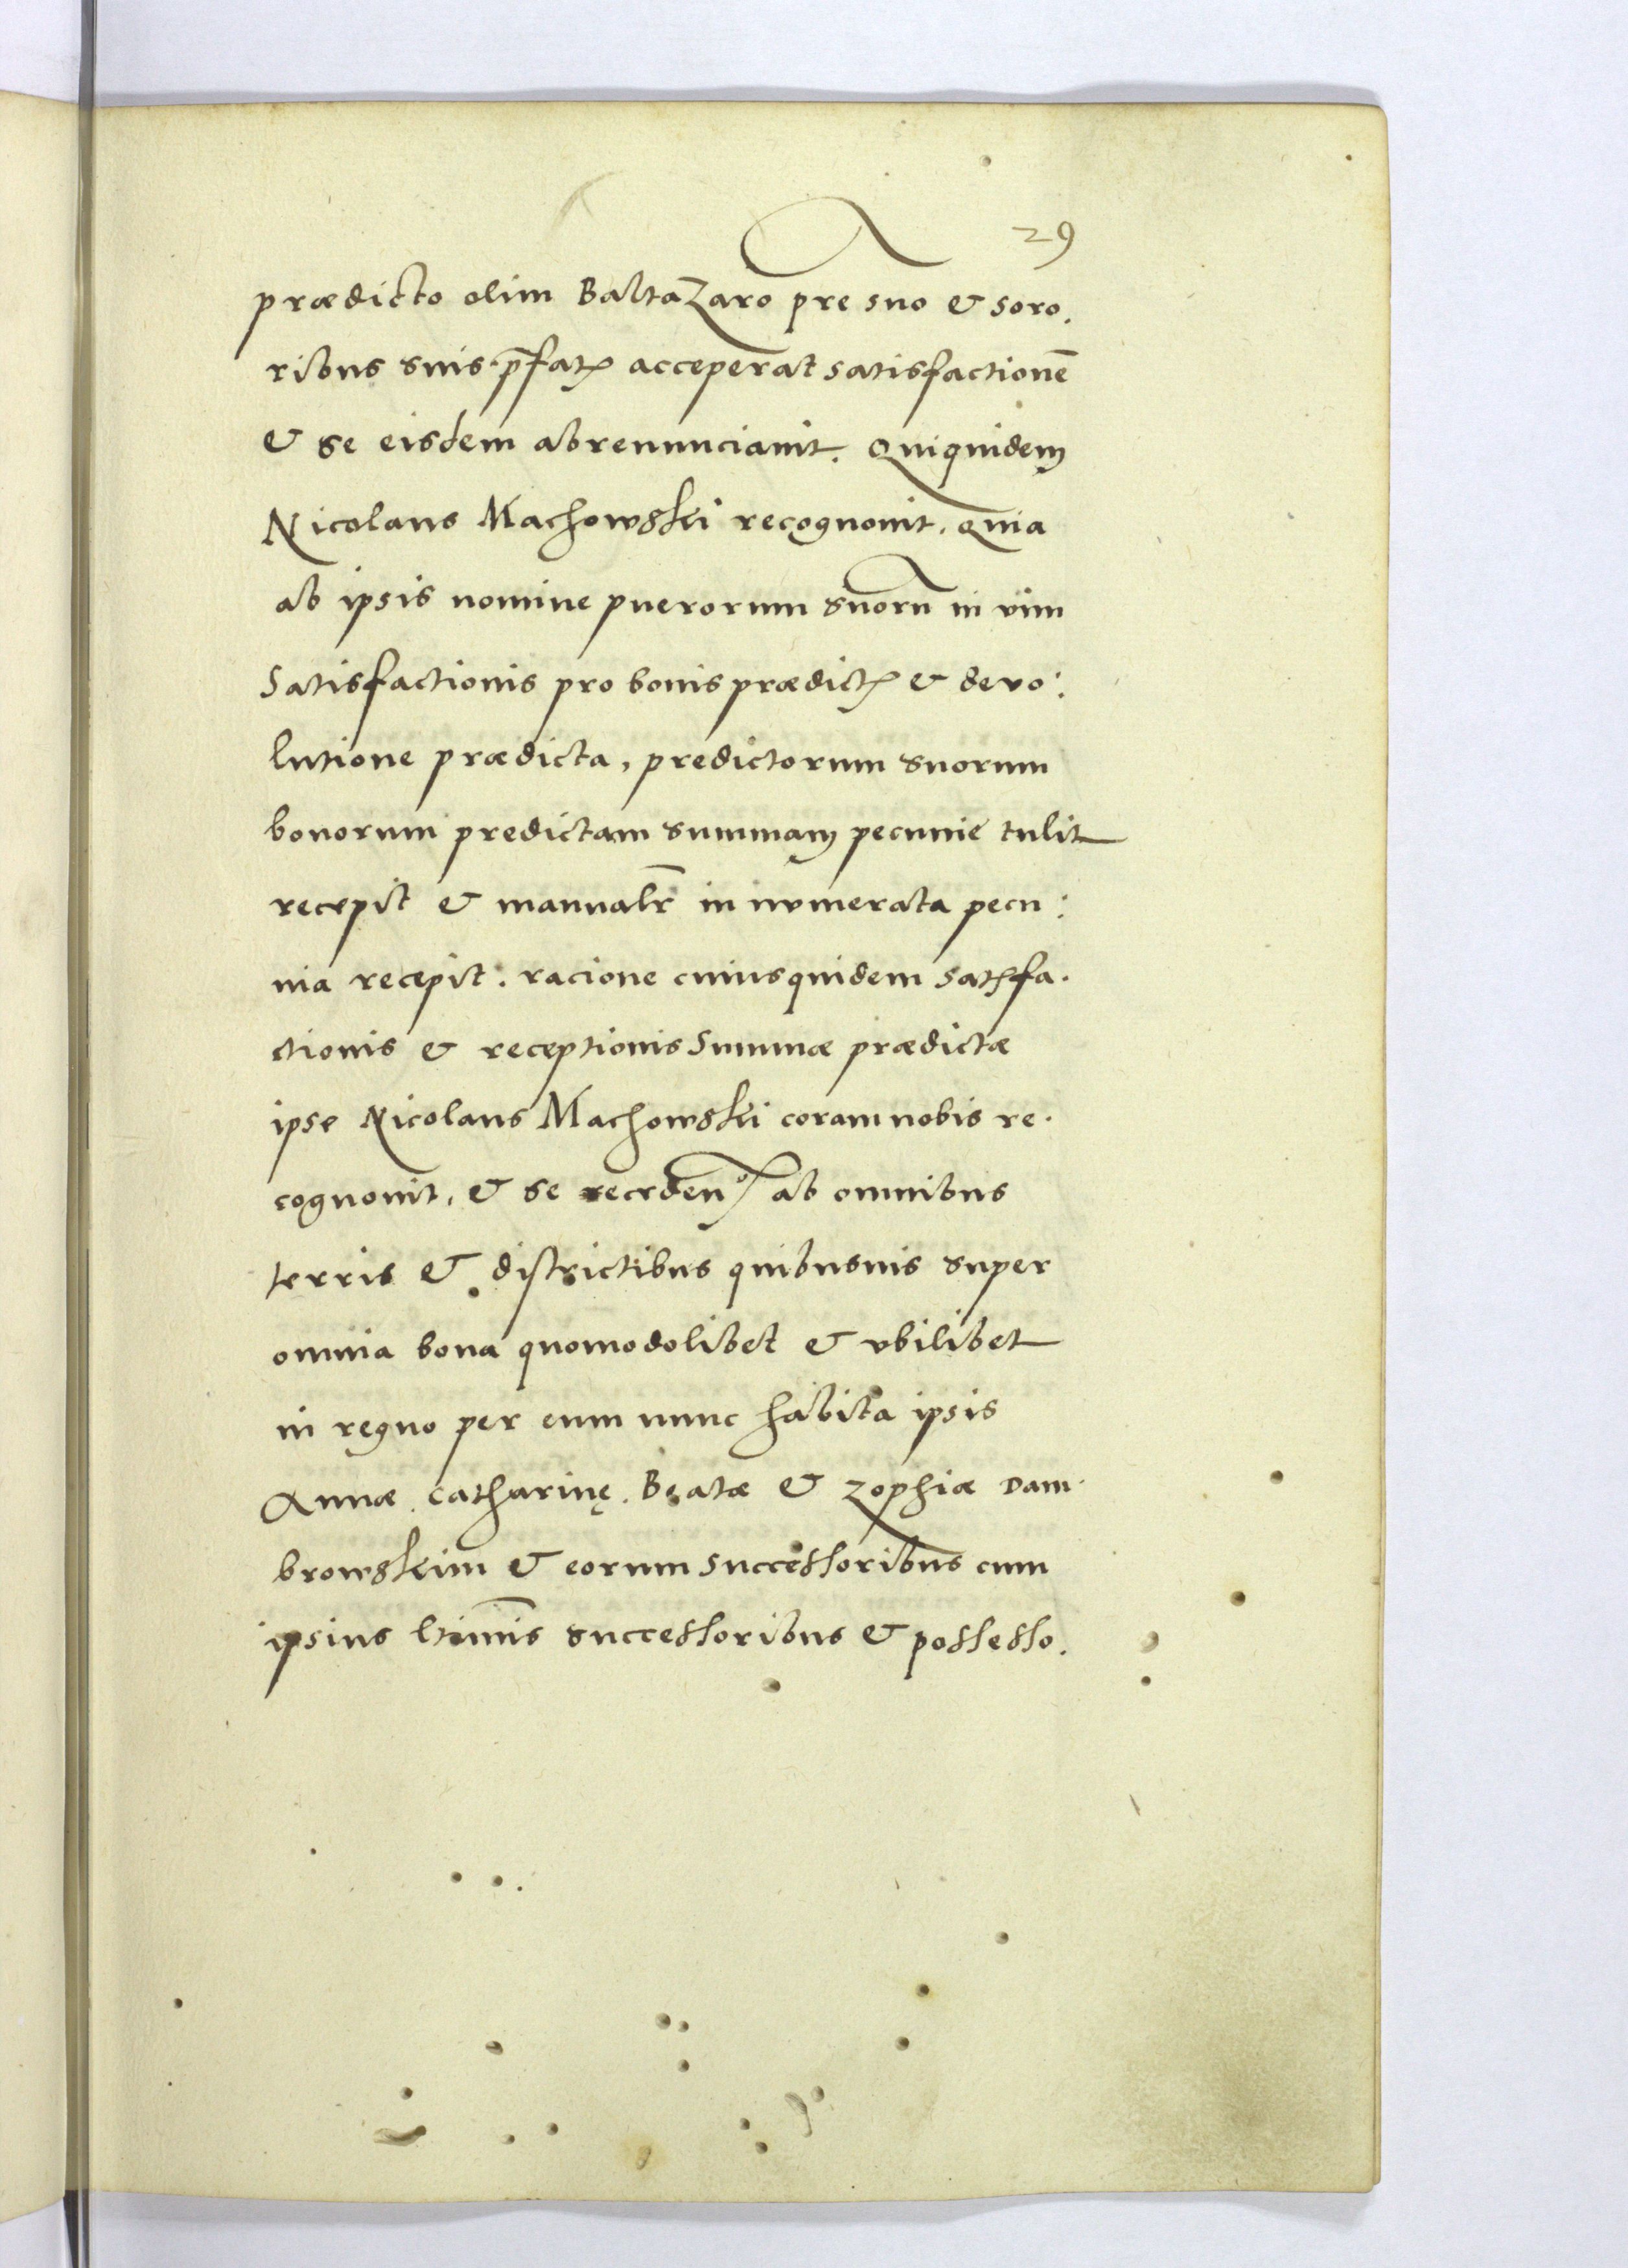 29
prædicto olim Baltazaro pre suo & soro.
ribus suis p̄fatꝭ acceperat satisfactionē
& se eisdem abrenunciauit. Quiquidem
Nicolaus Machowski recognouit. quia
ab ipsis nomine puerorum suorū in vim
Satisfactionis pro bonis prædictꝭ & devo:
lutione prædicta, predictorum suorum
bonorum predictam summam pecunie tulit
recepit & manualr̄ in numerata pecu:
nia recepit. racione cuiusquidem satꝭfa.
ctionis & receptionis Summæ prædictæ
ipse Nicolaus Machowski coram nobis re.
cognouit, & se ab omnibus
terris & districtibus quibusuis super
omnia bona quomodolibet & vbilibet
in regno per eum nunc habita ipsis
Annæ Catharinę. Beatæ & Zophiæ Dam.
browskim & eorum successoribus cum
ipsius ltīmis successoribus & possesso.